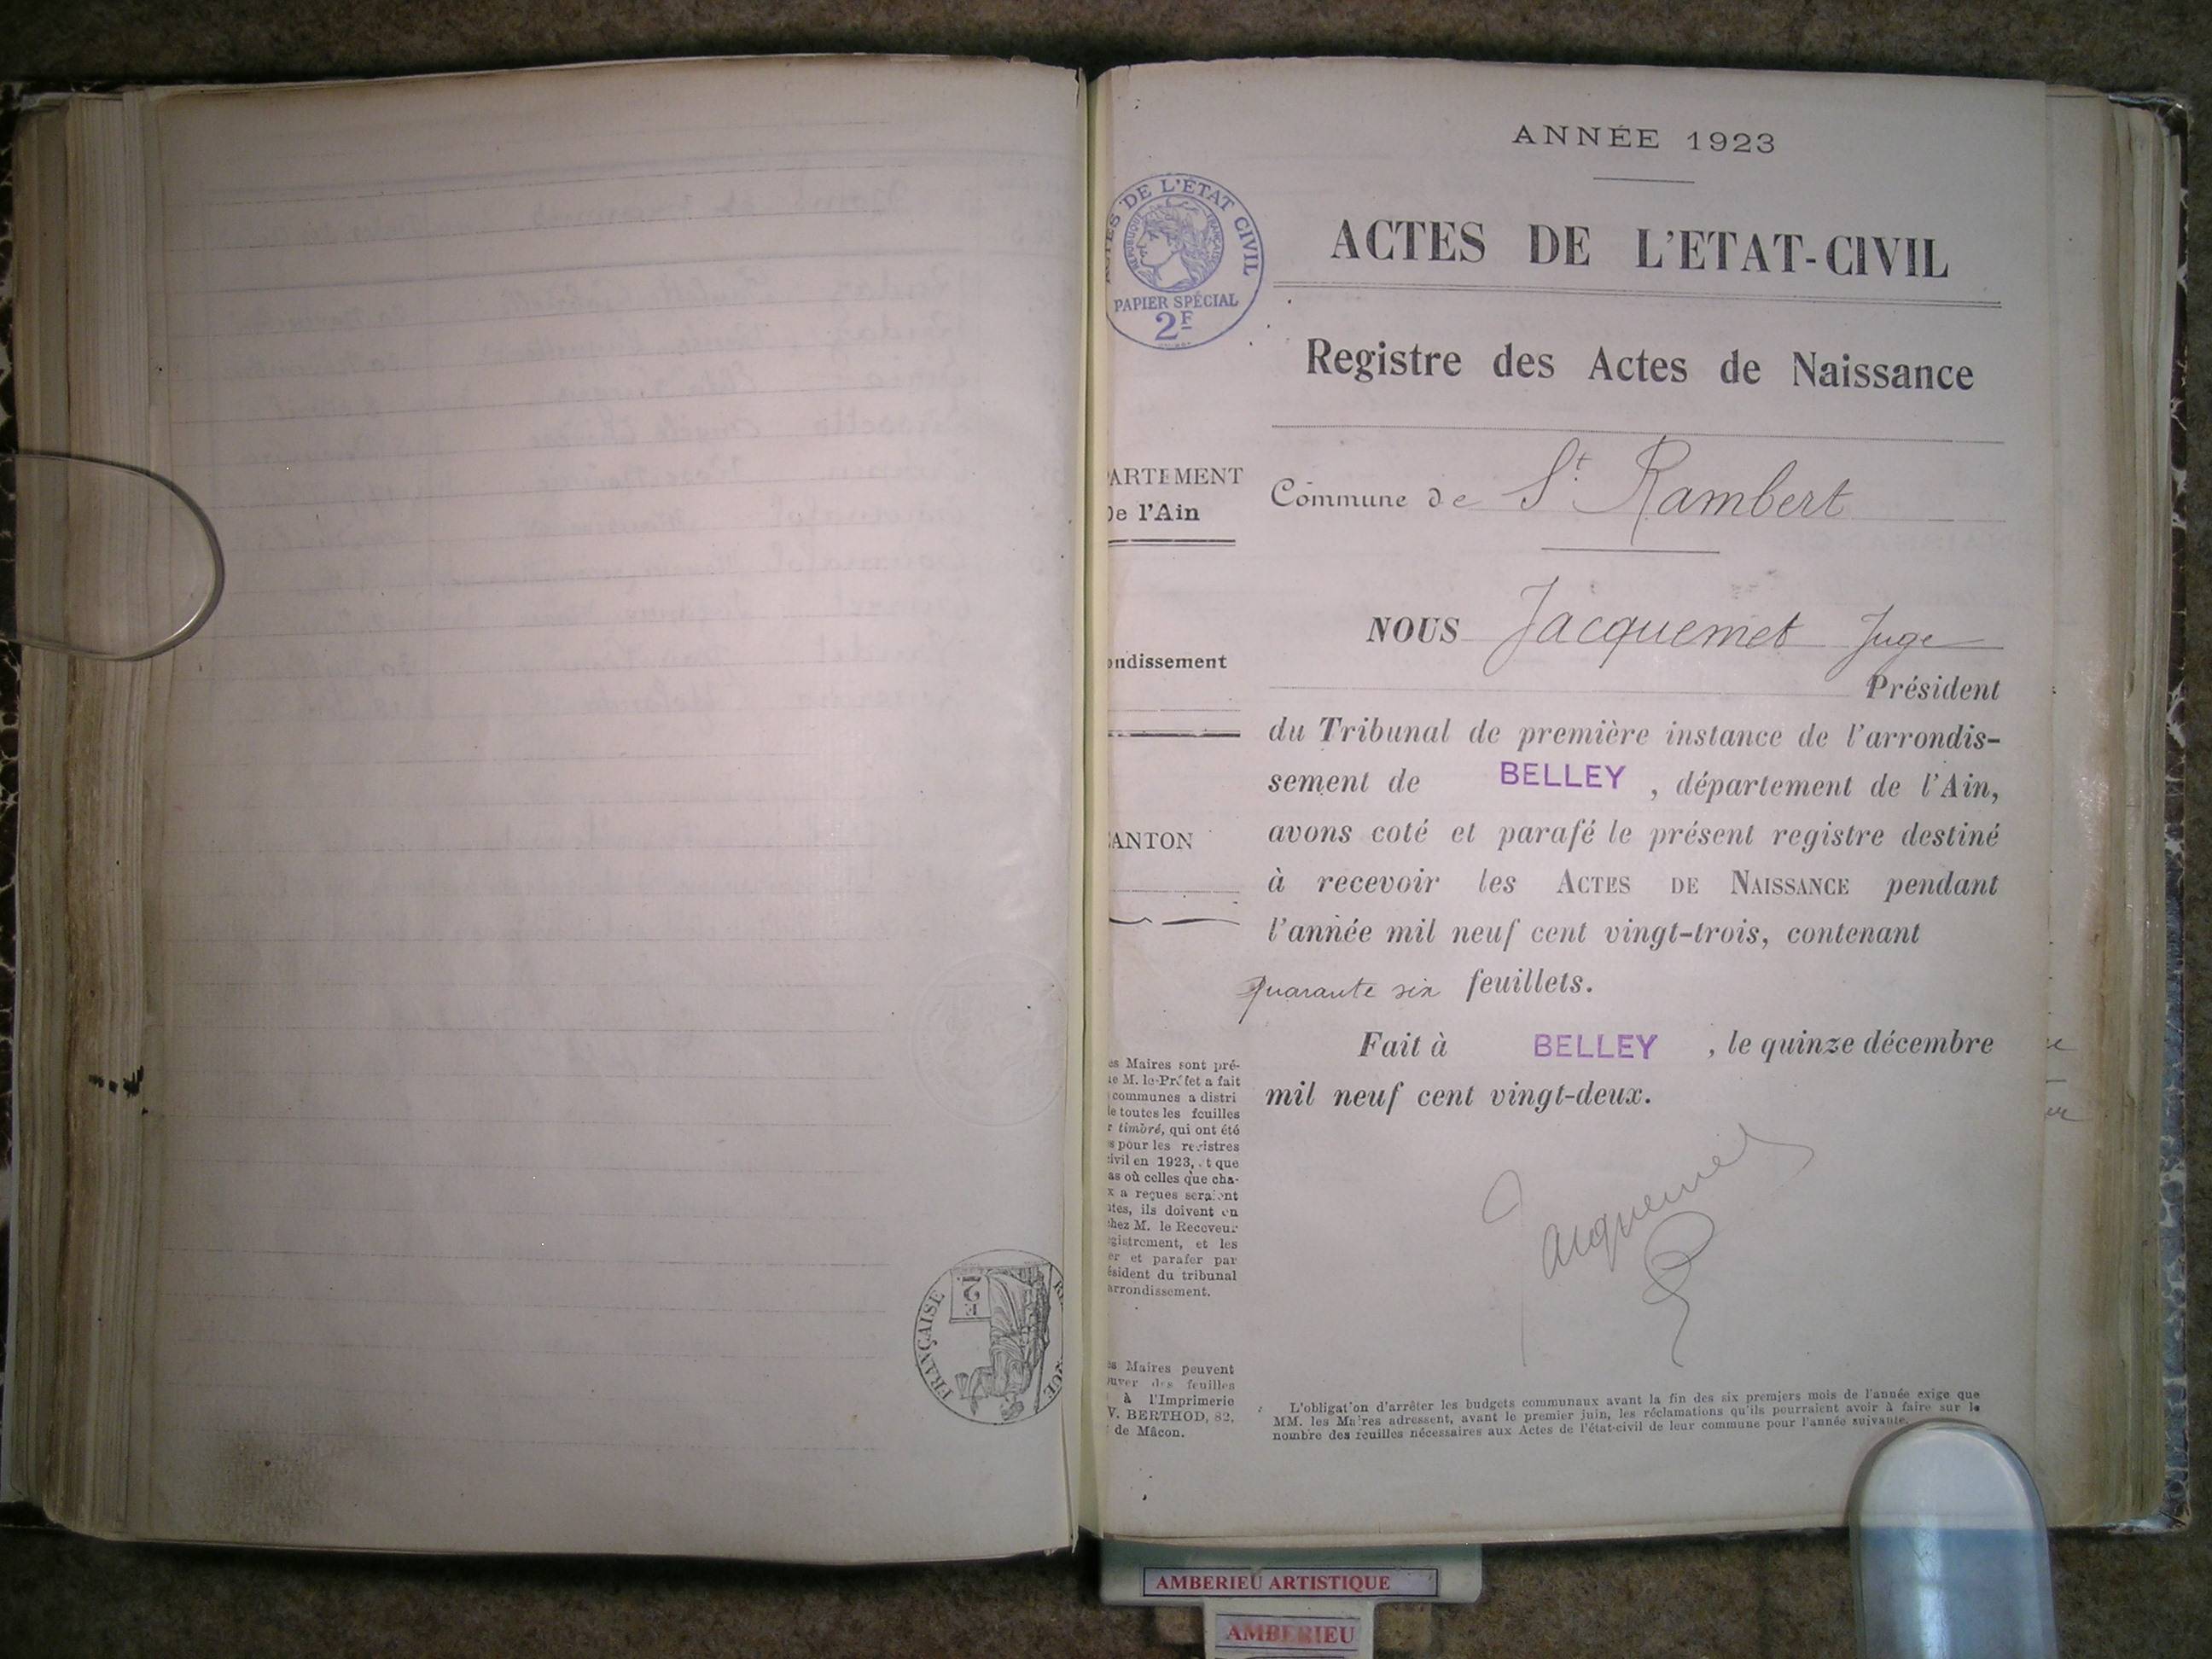 ANNÉE 1923
ACTES DE L'ÉTAT CIVIL
RÉPUBLIQUE FRANÇAISE
PAPIER SPÉCIAL
2F
ACTES DE L'ETAT-CIVIL
Registre des Actes de Naissance
ARTEMENT
De l'Ain
Commune de St Rambert
NOUS Jacquemet Juge
ondissement
Président
du Tribunal de première instance de l'arrondis-
sement de BELLEY, département de l'Ain,
ANTON
avons coté et parafé le présent registre destiné
à recevoir les ACTES DE NAISSANCE pendant
l'année mil neuf cent vingt-trois, contenant
quarante six feuillets.
Fait à BELLEY, le quinze décembre
mil neuf cent vingt-deux.
Jacquemet
es Maires sont pré-
ue M. le Préfet a fait
communes a distri
de toutes les feuilles
r timbré, qui ont été
s pour les registres
civil en 1923, et que
as où celles que cha-
x a reçues seraient
ntes, ils doivent en
chez M. le Receveur
gistrement, et les
er et parafer par
ésident du tribunal
arrondissement.
es Maires peuvent
ouver des feuilles
à l'Imprimerie
V. BERTHOD, 82,
de Mâcon.
L'obligation d'arrêter les budgets communaux avant la fin des six premiers mois de l'année exige que
MM. les Maires adressent, avant le premier juin, les réclamations qu'ils pourraient avoir à faire sur le
nombre des feuilles nécessaires aux Actes de l'état-civil de leur commune pour l'année suivante.
FRANÇAISE
2F
AMBERIEU ARTISTIQUE
AMBERIEU